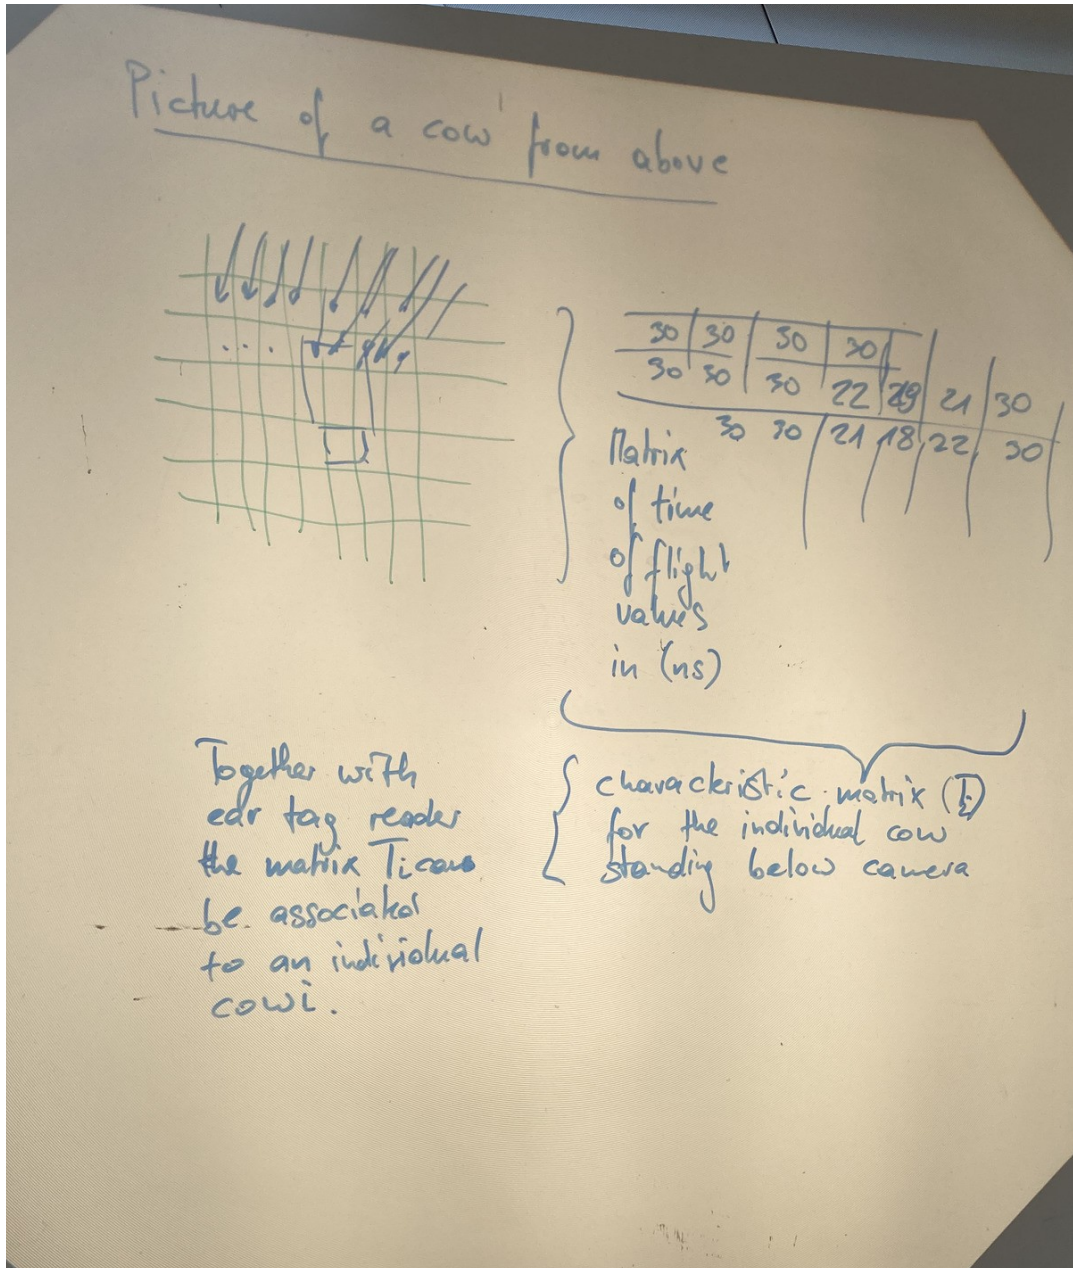 Picture of a cow from above
. . .
30 30 30 30
30 30 30 22 21 30
30 30 21 18 22 30
Matrix
of time
of flight
values
in (ns)
characteristic matrix
for the individual cow
standing below camera
Together with
ear tag reader
the matrix Ti can
be associated
to an individual
cow i.